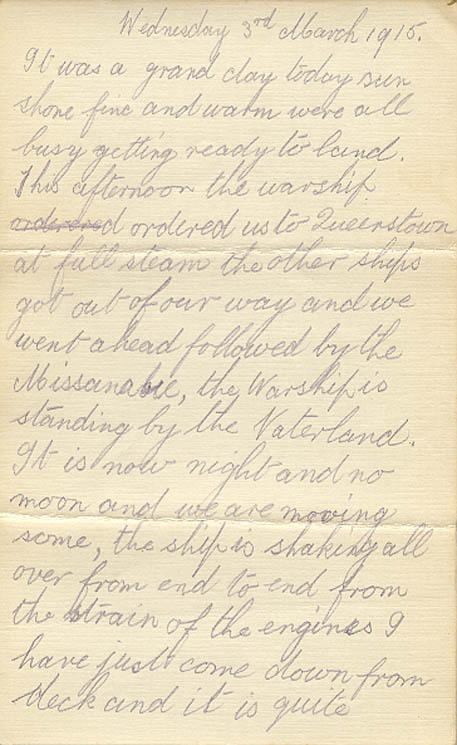 Wednesday 3rd March 1915.
It was a grand day today sun
shone fine and warm were all
busy getting ready to land.
This afternoon the warship
ordered ordered us to Queenstown
at full steam the other ships
got out of our way and we
went ahead followed by the
Missanabie, the Warship is
standing by the Vaterland.
It is now night and no
moon and we are moving
some, the ship is shaking all
over from end to end from
the strain of the engines I
have just come down from
deck and it is quite